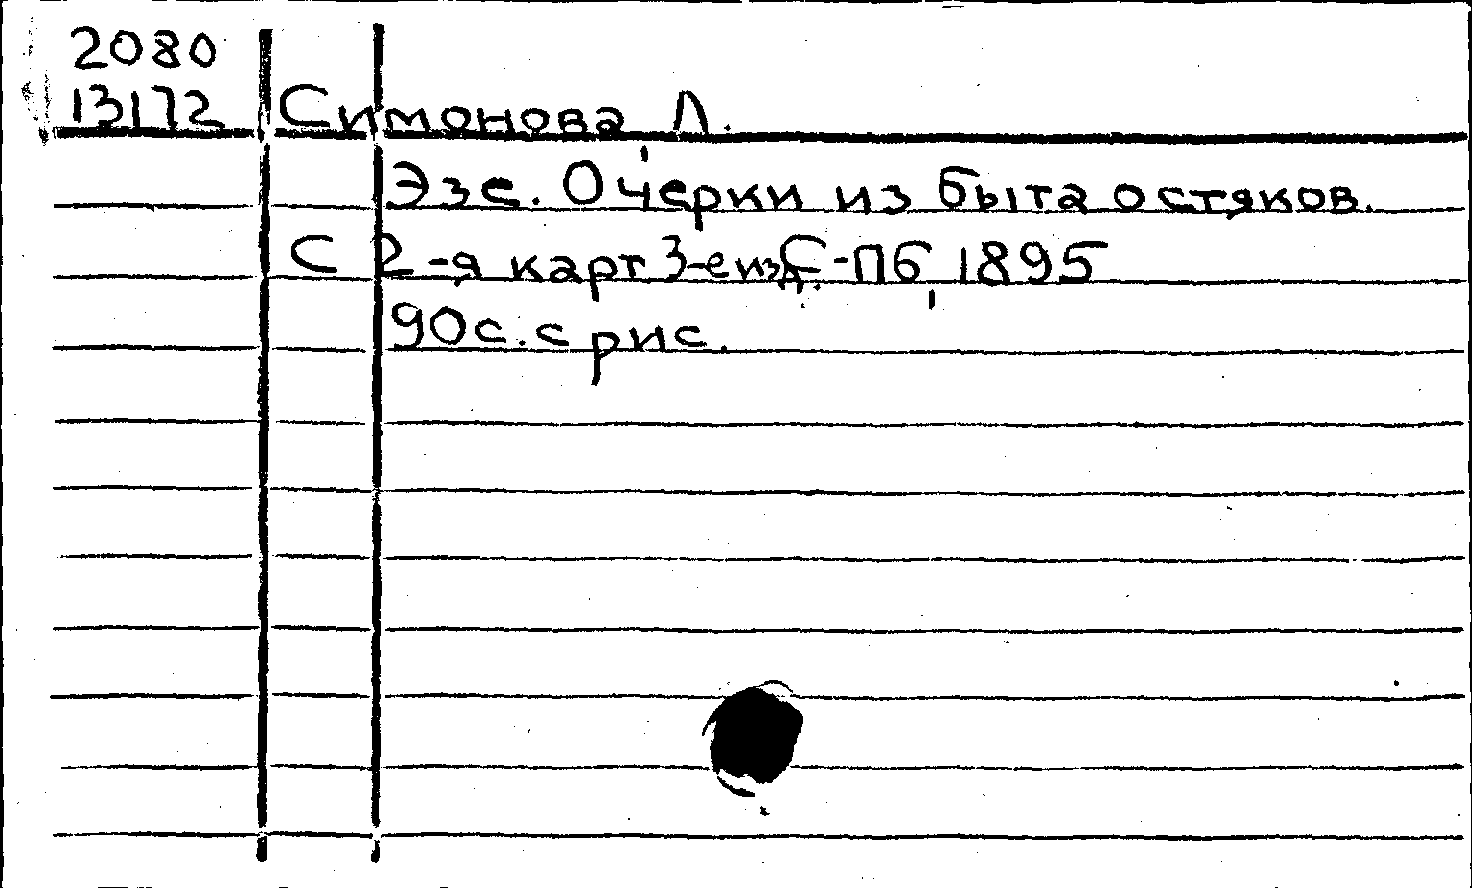 2080
13172 Симонова Л.
Эзе. Очерки из быта остяков.
С 2-я карт 3-е изд. С-Пб, 1895
90 с. с рис.